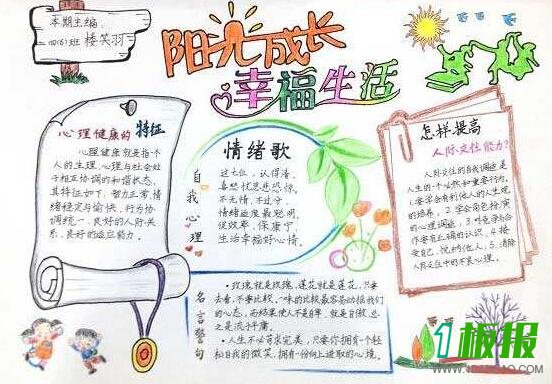 本期主编:
四(6)班 楼笑羽
阳光成长
幸福生活
心理健康的 特征
心理健康就是指个
人的生理、心理与社会处
于相互协调的和谐状态,
其特征如下:智力正常,情
绪稳定与愉快,行为协
调统一,良好的人际关
系,良好的适应能力。
自我心理
情绪歌
这七位,认得清,
喜怒忧思悲恐惊。
不无情,不过分,
情绪适度最聪明,
促效率,保康宁,
生活幸福好心情。
怎样提高
人际交往能力?
人际交往的自我调适是
人生的个必然和重要行为。
1、要学会有利他人的人生观
的培养,2、学会角色扮演
的心理调适,3、对自尊与合
作要有正确的认识,4、接
受自己,悦纳他人,5、消除
人际交往中的不良心理。
名言警句
·玫瑰就是玫瑰,莲花就是莲花,只要
去看,不要比较。一味的比较最容易动摇我们
的心态,
之是流于平庸。
·人生不必苛求完美,只要你拥有一个轻
松自我的微笑,拥有一份向上进取的心境。
1板报
WWW.1BANBAO.COM